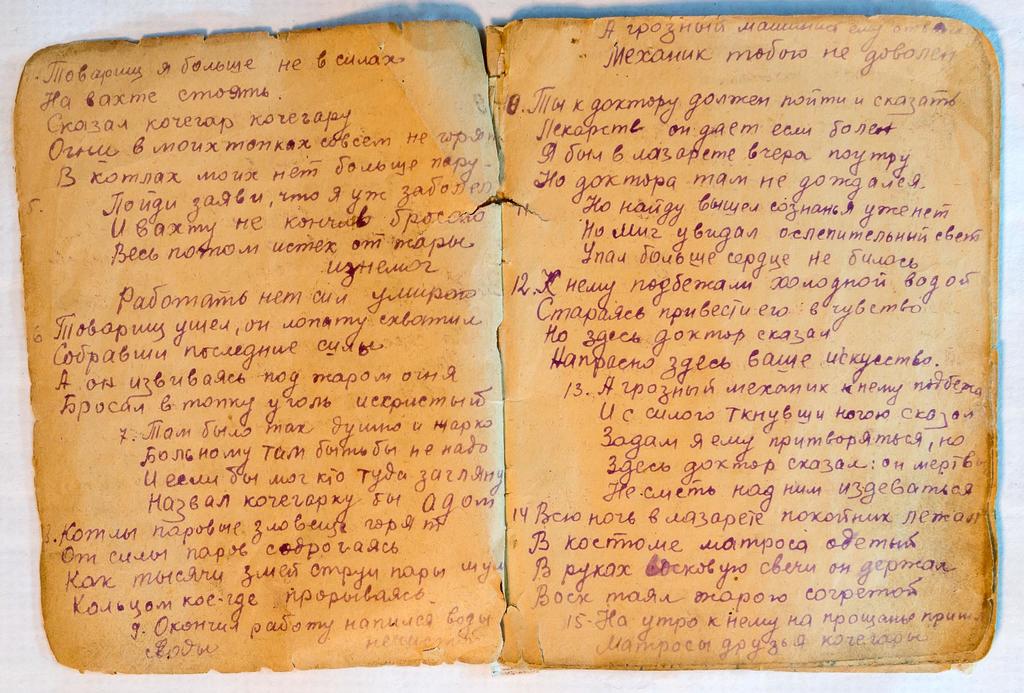 Товарищ я больше не в силах
На вахте стоять.
Сказал кочегар кочегару
Огни в моих топках совсем не горят
В котлах моих нет больше пару.
5. Пойди заяви, что я уж заболел
И вахту не кончив бросаю
Весь потом истек от жары
изнемог
Работать нет сил умираю
6 Товарищ ушел, он лопату схватил
Собравши последние силы
А он извиваясь под жаром огня
Бросал в топку уголь искристый
7. Там было так душно и жарко
Больному там быть бы не надо
И если бы мог кто туда загляну
Назвал кочегарку бы адом
8. Котлы паровые зловеще горят
От силы паров содрогаясь
Как тысячи змей струи пары шум
Кольцом кое-где прорываясь
9. Окончил работу напился воды
Воды нечистой
А грозный машина ему
Механик тобою не доволен
8. Ты к доктору должен пойти и сказать
Лекарств он дает если болен
Я был в лазарете вчера поутру
Но доктора там не дождался
11 Но найду вышел сознанья уж нет
На миг увидал ослепительный свет
Упал больше сердце не билось
12. К нему подбежали холодной водой
Стараясь привести его в чувство
Но здесь доктор сказал
Напрасно здесь ваше искусство.
13. А грозный механик к нему подбежа
И с силого ткнувши ногою сказал
Задам я ему притворяться, но
Здесь доктор сказал: он мертвы
Не сметь над ним издеваться
14 Всю ночь в лазарете покойник лежал
В костюме матроса одетый
В руках восковую свечи он держал
Воск таял жарою согретой
15- На утро к нему на прощанье приш
Матросы друзья кочегары